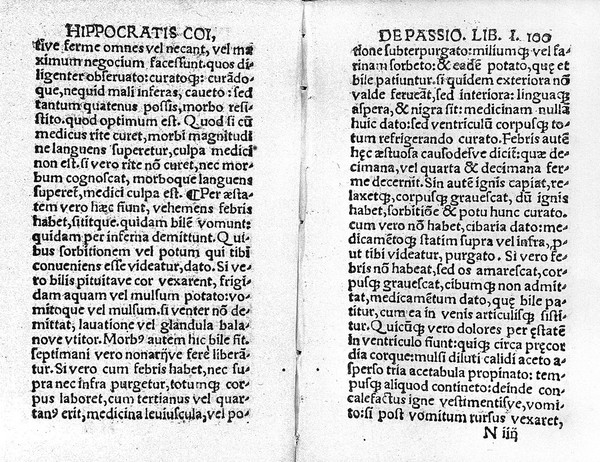 HIPPOCRATIS COI,
tive ferme omnes vel necant, vel ma⸗
ximum negocium facessunt. quos di⸗
ligenter obseruato: curatoqꝫ: curãdo⸗
que, nequid mali inferas, caueto: sed
tantum quatenus possis, morbo resi⸗
stito. quod optimum est. Quod si cũ
medicus rite curet, morbi magnitudi
ne languens superetur, culpa medici
non est. si vero rite nõ curet, nec mor⸗
bum cognoscat, morboque languens
superet᷑, medici culpa est. ¶Per æsta⸗
tem vero hæc fiunt, vehemens febris
habet, sititque. quidam bilẽ vomunt:
quidam per inferna demittunt. Qui⸗
bus sorbitionem vel potum qui tibi
conueniens esse videatur, dato. Si ve⸗
ro bilis pituitave cor vexarent, frigi⸗
dam aquam vel mulsum potato: vo⸗
mitoque vel mulsum. si venter nõ de⸗
mittat, lauatione vel glandula bala⸗
nove vtitor. Morbꝰ autem hic bile fit.
septimani vero nonariꝗve fere liberã⸗
tur. Si vero cum febris habet, nec su⸗
pra nec infra purgetur, totumqꝫ cor⸗
pus laboret, cum tertianus vel quar⸗
tanꝰ erit, medicina leuiuscula, vel po⸗
DE PASSIO. LIB. I. 100
tione subterpurgato: miliumqꝫ vel fa⸗
rinam sorbeto: & eadẽ potato, quę et
bile patiuntur. si quidem exteriora nõ
valde ferueãt, sed interiora: linguaqꝫ
aspera, & nigra sit: medicinam nullã
huic dato: sed ventriculũ corpusqꝫ to⸗
tum refrigerando curato. Febris autẽ
hęc æstuosa causodesve dicit᷑: quæ de⸗
cimana, vel quarta & decimana fer⸗
me decernit. Sin autẽ ignis capiat, re⸗
laxetqꝫ, corpusqꝫ grauescat, dũ ignis
habet, sorbitiõe & potu hunc curato.
cum vero nõ habet, cibaria dato: me⸗
dicamẽtoqꝫ statim supra vel infra, ꝓ⸗
ut tibi videatur, purgato. Si vero fe⸗
bris nõ habeat, sed os amarescat, cor⸗
pusqꝫ grauescat, cibumqꝫ non admit⸗
tat, medicamẽtum dato, quę bile pa⸗
titur, cum ea in venis articulisqꝫ sisti⸗
tur. Quicũqꝫ vero dolores per ęstatẽ
in ventriculo fiunt: quiqꝫ circa pręcor
dia corque: mulsi diluti calidi aceto a⸗
sperso tria acetabula propinato: tem⸗
pusqꝫ aliquod contineto: deinde con⸗
calefactus igne vestimentisve, vomi⸗
to: si post vomitum rursus vexaret,
N iiij